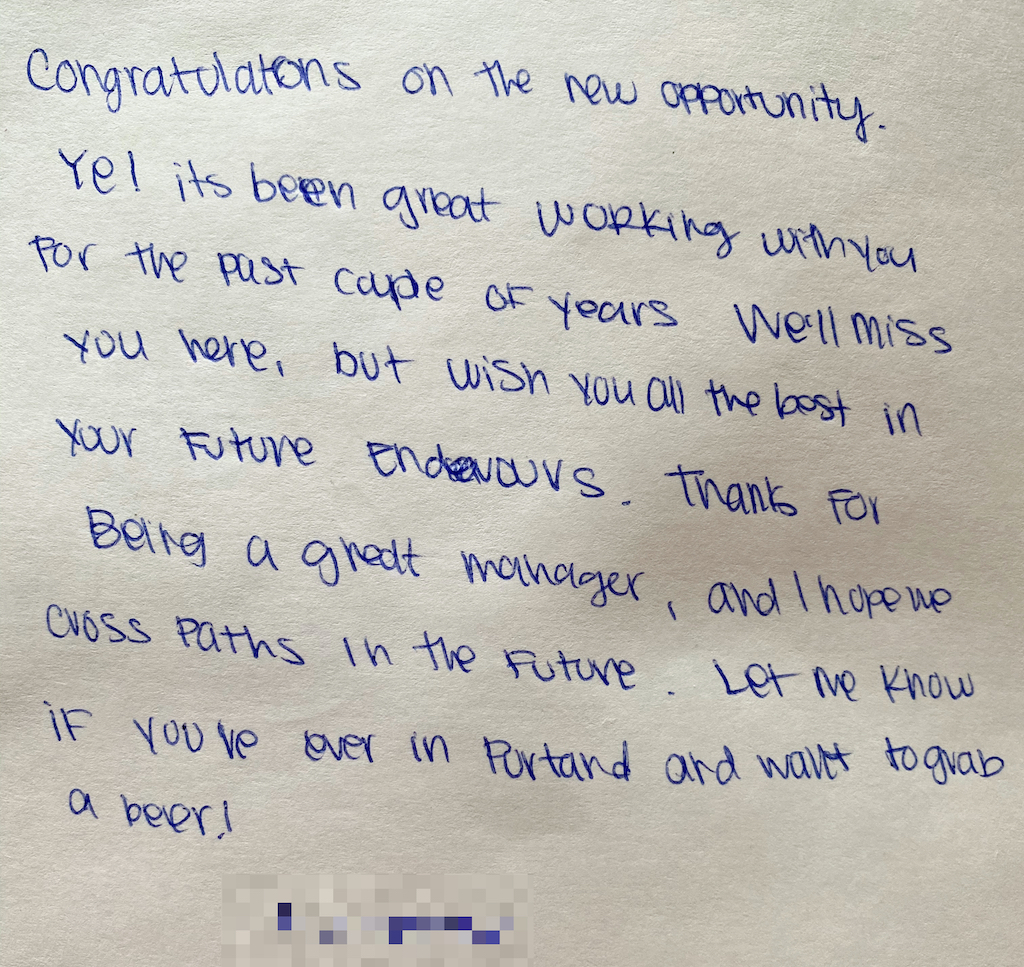 Congratulations on the new opportunity.
Ye! its been great working with you
for the past couple of years We'll miss
you here, but wish you all the best in
your future Endeavours. Thanks for
Being a great manager, and I hope we
cross paths in the future. Let me know
if you've ever in Portland and want to grab
a beer!